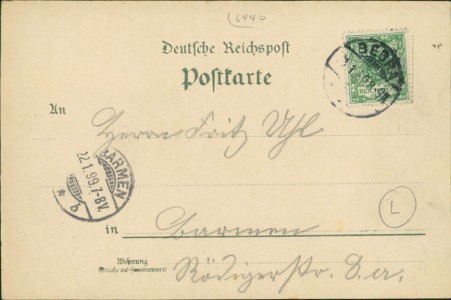 6440
Deutsche Reichspost
Postkarte
An
Herrn Fritz Uhl
BARMEN
22.1.99.7-8V.
* g
in Barmen
L
Wohnung
(Straße und Hausnummer)
Rödigerstr. 8a.